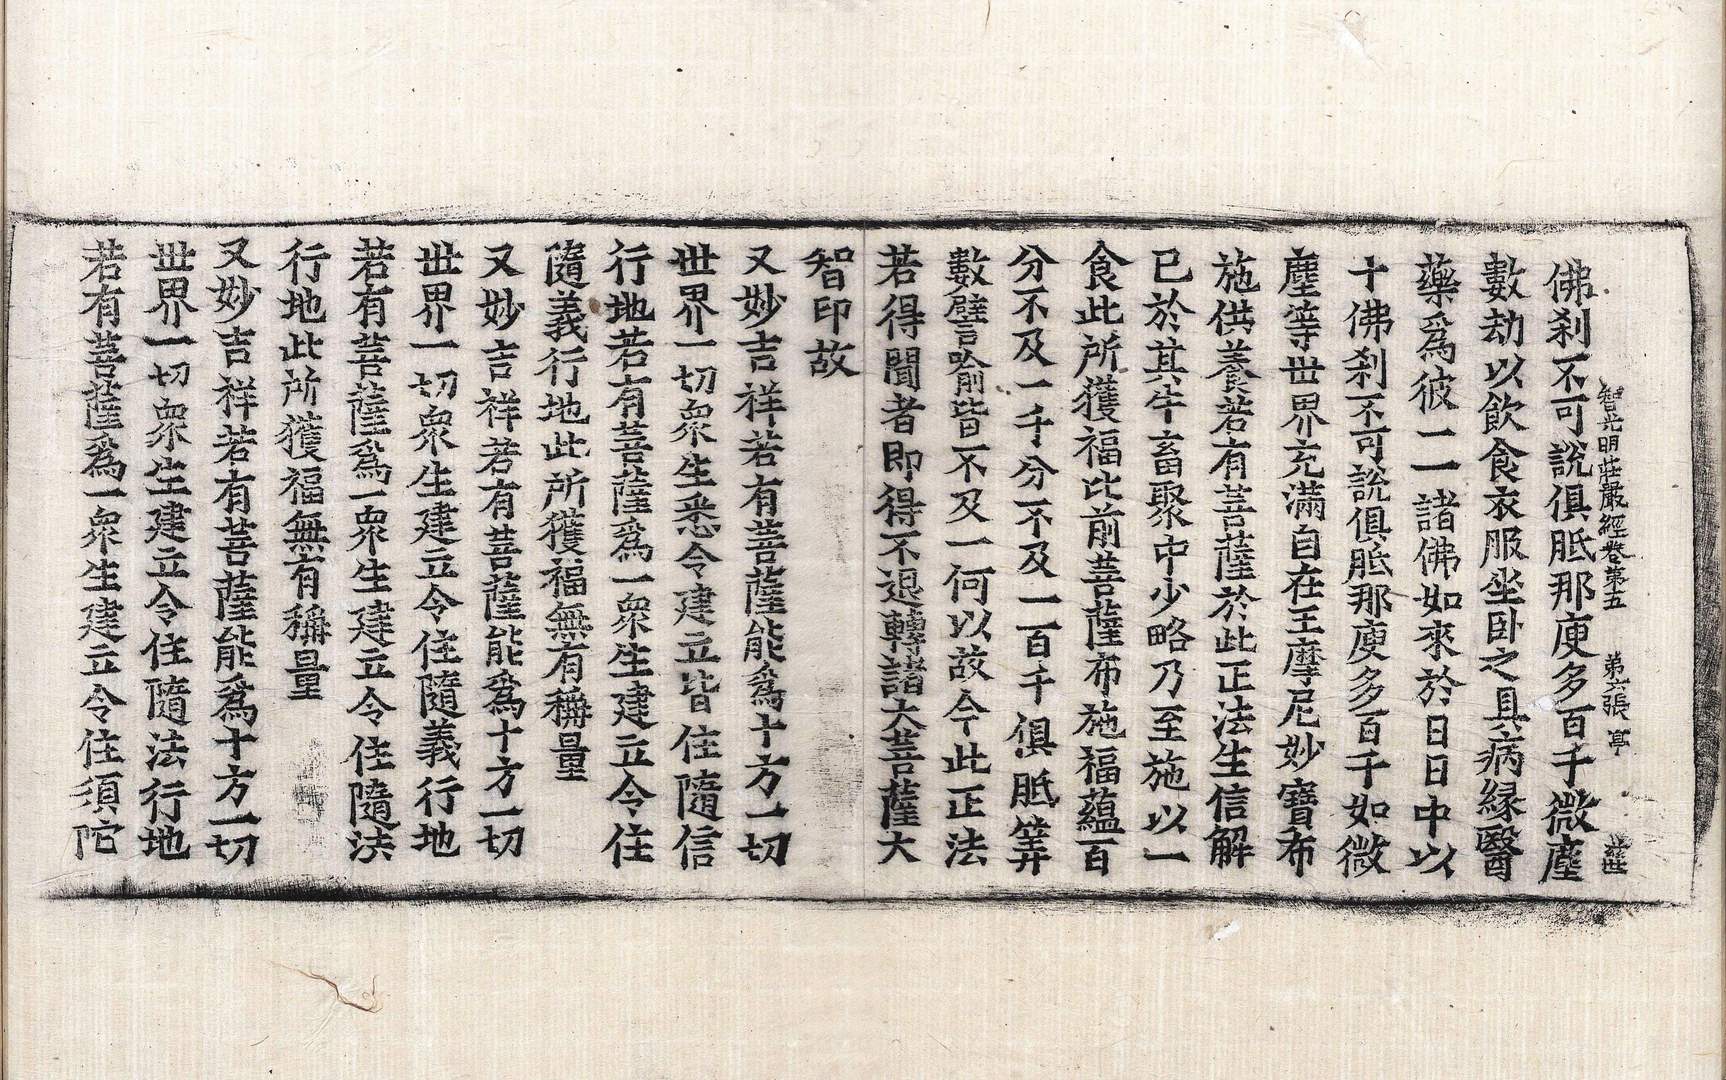 智光明莊嚴經卷第五　第六張　亭
佛刹不可說俱胝那庾多百千微塵
數劫以飲食衣服坐卧之具病緣醫
藥爲彼一一諸佛如來於日日中以
十佛刹不可說俱胝那庾多百千如微
塵等世界充滿自在王摩尼妙寶布
施供養若有菩薩於此正法生信解
已於其牛畜聚中少略乃至施以一
食此所獲福比前菩薩布施福蘊百
分不及一千分不及一百千俱胝筭
數譬喻皆不及一何以故今此正法
若得聞者即得不退轉諸大菩薩大
智印故
又妙吉祥若有菩薩能爲十方一切
世界一切衆生悉令建立皆住隨信
行地若有菩薩爲一衆生建立令住
隨義行地此所獲福無有稱量
又妙吉祥若有菩薩能爲十方一切
世界一切衆生建立令住隨義行地
若有菩薩爲一衆生建立令住隨法
行地此所獲福無有稱量
又妙吉祥若有菩薩能爲十方一切
世界一切衆生建立令住隨法行地
若有菩薩爲一衆生建立令住須陀